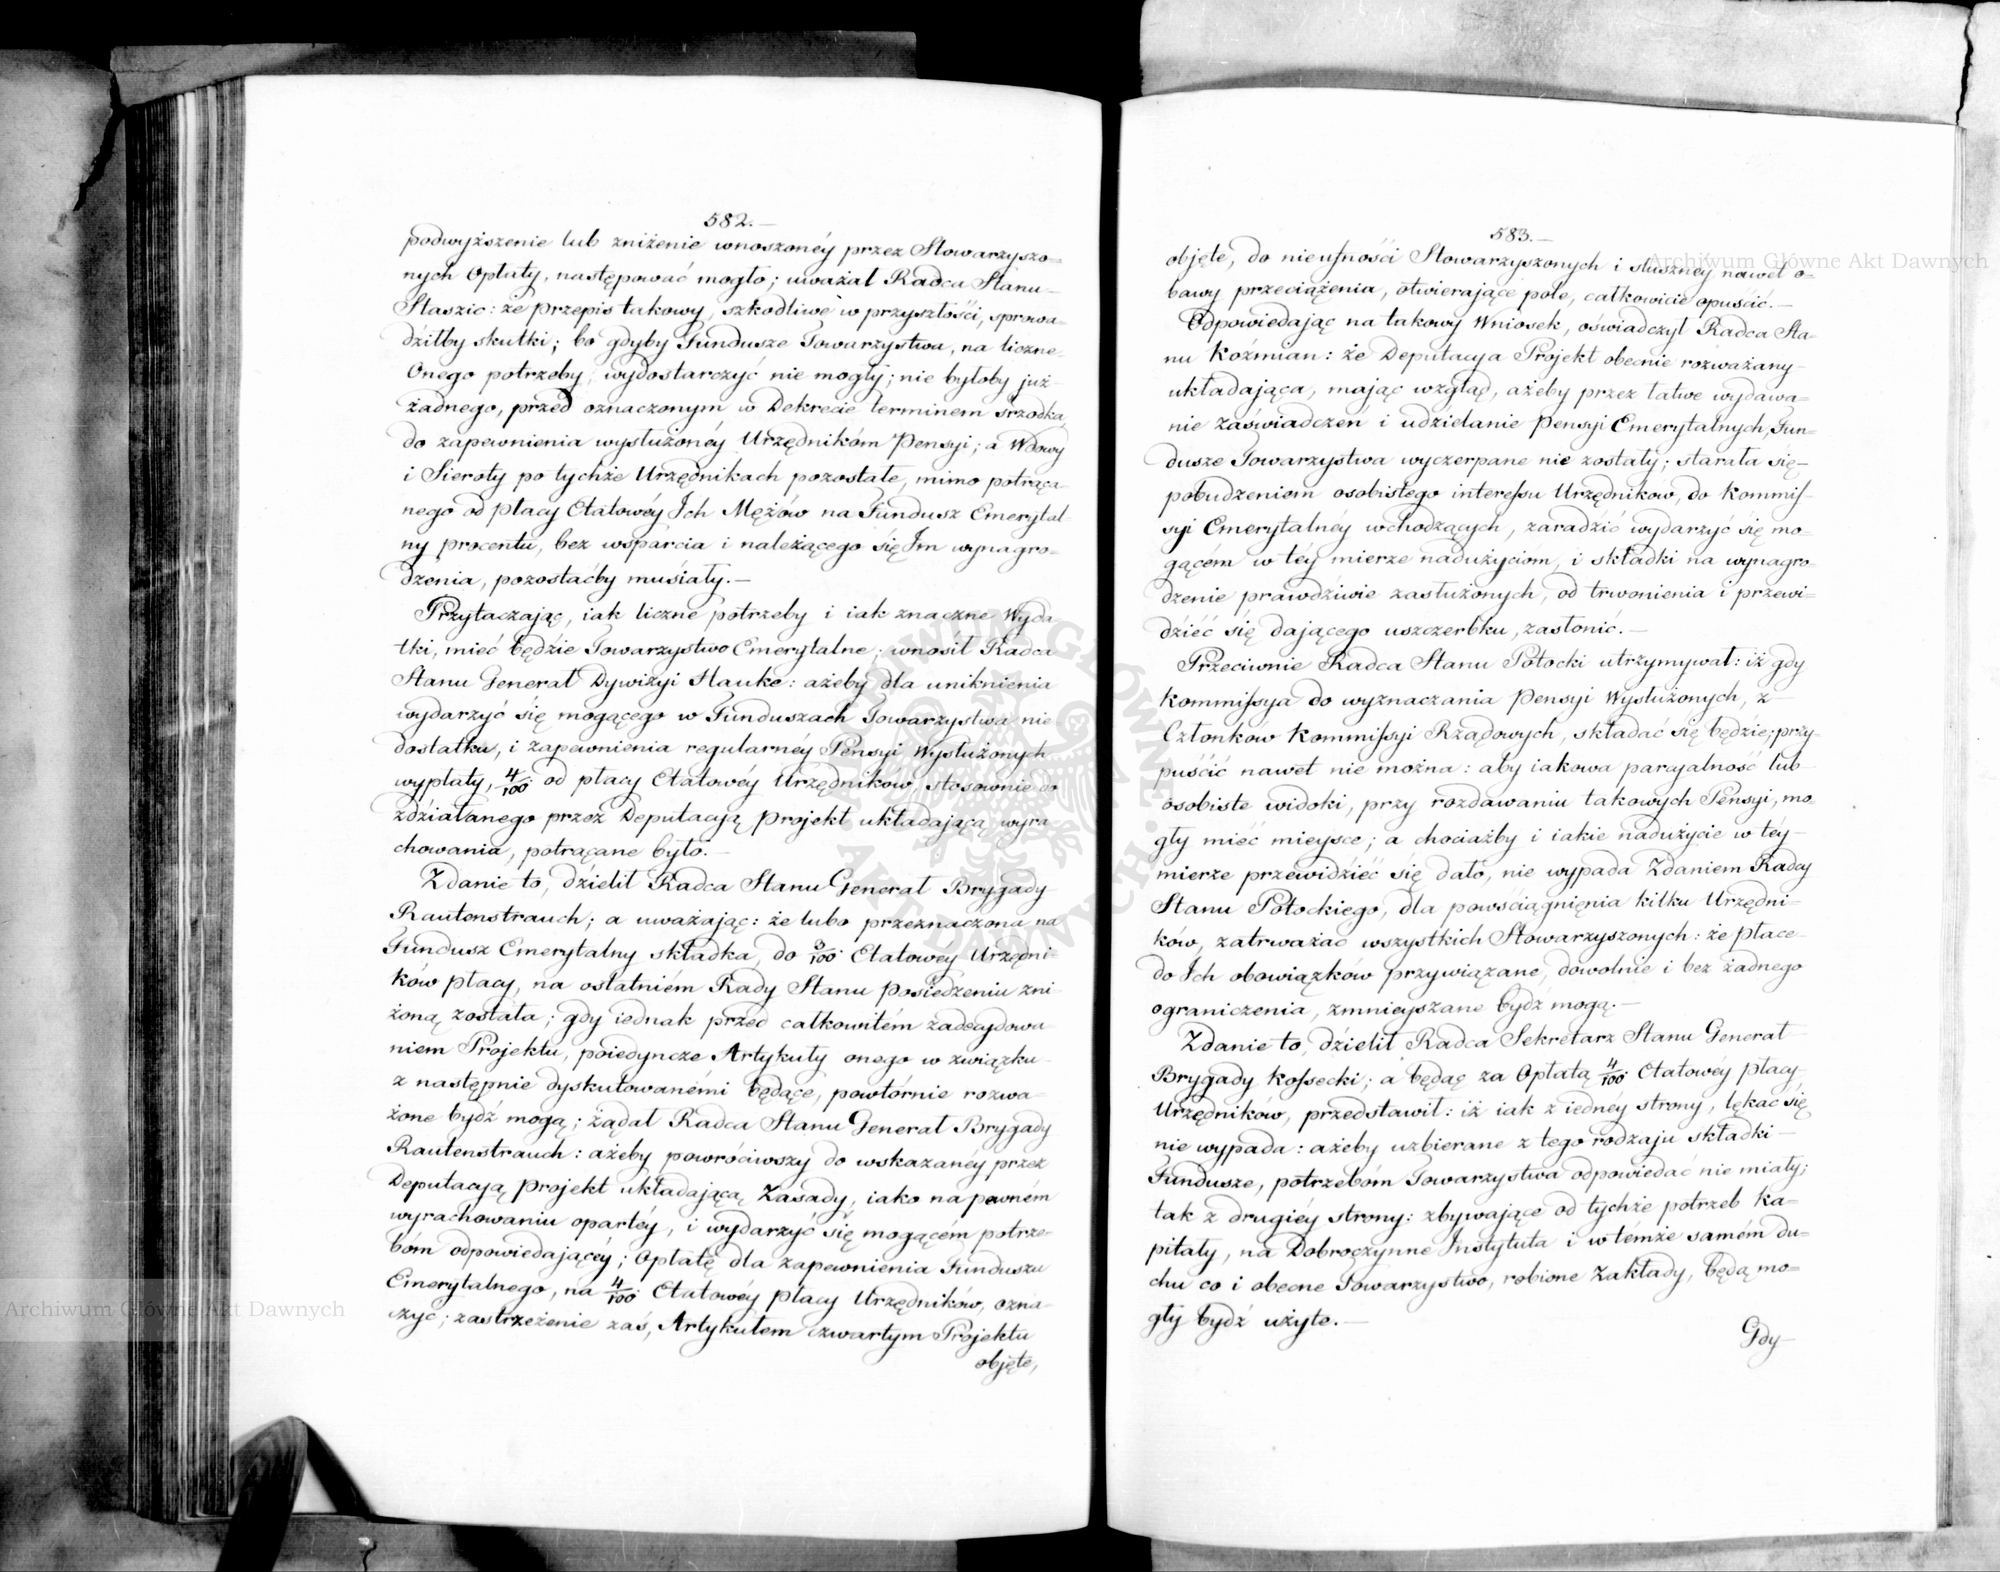 582.
podwyższenie lub zniżenie wnoszonéy przez Stowarzyszo=
nych Opłaty, następować mogło; uważał Radca Stanu
Staszic: że przepis takowy, szkodliwe w przyszłości, sprowa=
dziłby skutki; bo gdyby Fundusze Towarzystwa, na liczne
Onego potrzeby, wydostarczyć nie mogły; nie byłoby już
żadnego, przed oznaczonym w Dekrecie terminem środka,
do zapewnienia wysłużonéy Urzędnikóm Pensyi; a Wdowy
i Sieroty po tychże Urzędnikach pozostałe, mimo potrąca=
nego od płacy Etatowéy Ich Mężów na Fundusz Emerytal=
ny procentu, bez wsparcia i należącego się Im wynagro=
dzenia, pozostaćby musiały.—
Przytaczając, iak liczne potrzeby i iak znaczne Wyda
tki, mieć będzie Towarzystwo Emerytalne; wnosił Radca
Stanu Generał Dywizyi Hauke: ażeby dla uniknienia
wydarzyć się mogącego w Funduszach Towarzystwa nie=
dostatku, i zapewnienia regularnéy Pensyi Wysłużonych
wypłaty, 4/100 od płacy Etatowéy Urzędników, stosownie do
zdziałanego przez Deputacyą Projekt układającą wyra=
chowania, potrącane było.—
Zdanie to, dzielił Radca Stanu Generał Brygady
Rautenstrauch; a uważając: że lubo przeznaczona na
Fundusz Emerytalny składka, do 3/100 Etatowéy Urzędni=
ków płacy, na ostatniém Rady Stanu Posiedzeniu zni=
żoną została; gdy iednak przed całkowitém zadecydowa=
niem Projektu, poiedyncze Artykuły onego w związku
z następnie dyskutowanémi będące, powtórnie rozwa=
żone bydź mogą; żądał Radca Stanu Generał Brygady
Rautenstrauch: ażeby powróciwszy do wskazanéy przez
Deputacyą Projekt układającą Zasady, iako na pewném
wyrachowaniu opartéy, i wydarzyć się mogącém potrze=
bóm odpowiedającéy; Opłatę dla zapewnienia Funduszu
Emerytalnego, na 4/100 Etatowéy płacy Urzędników, ozna=
czyć; zastrzeżenie zaś, Artykułem czwartym Projektu
objęte,
583.
objęte, do nieufności Stowarzyszonych i słusznéy nawet o=
bawy przeciążenia, otwierające pole, całkowicie opuścić.—
Odpowiedając na takowy Wniosek, oświadczył Radca Sta=
nu Koźmian: że Deputacya Projekt obecnie rozważany
układająca, mając wzgląd, ażeby przez łatwe wydawa=
nie zaświadczeń i udzielanie Pensyi Emerytalnych, Fun=
dusze Towarzystwa wyczerpane nie zostały; starała się
pobudzeniem osobistego interessu Urzędników, do Kommis=
syi Emerytalnéy wchodzących, zaradzić wydarzyć się mo=
gącém w téy mierze nadużyciom, i składki na wynagro=
dzenie prawdziwie zasłużonych, od trwonienia i przewi=
dzieć się dającego uszczerbku, zasłonić.—
Przeciwnie Radca Stanu Potocki utrzymywał: iż gdy
Kommissya do wyznaczania Pensyi Wysłużonych, z
Członków Kommissyi Rządowych, składać się będzie; przy=
puścić nawet nie można: aby iakowa parcyalność lub
osobiste widoki, przy rozdawaniu takowych Pensyi, mo=
gły mieć mieysce; a chociażby i iakie nadużycie w téy
mierze przewidzieć się dało, nie wypada Zdaniem Radcy
Stanu Potockiego, dla powściągnięnia kilku Urzędni=
ków, zatrważać wszystkich Stowarzyszonych: że płace
do Ich obowiązków przywiązane, dowolnie i bez żadnego
ograniczenia, zmnieyszane bydź mogą.—
Zdanie to, dzielił Radca Sekretarz Stanu Generał
Brygady Kossecki; a będąc za Opłatą 4/100 Etatowéy płacy
Urzędników, przedstawił: iż iak z iednéy strony, lękać się
nie wypada: ażeby uzbierane z tego rodzaju składki
Fundusze, potrzebóm Towarzystwa odpowiedać nie miały;
tak z drugiéy strony: zbywające od tychże potrzeb ka=
pitały, na Dobroczynne Instytuta i w témże samém du=
chu co i obecne Towarzystwo, robione Zakłady, będą mo=
gły bydź użyte.—
Gdy
Archiwum Główne Akt Dawnych
Archiwum Główne Akt Dawnych